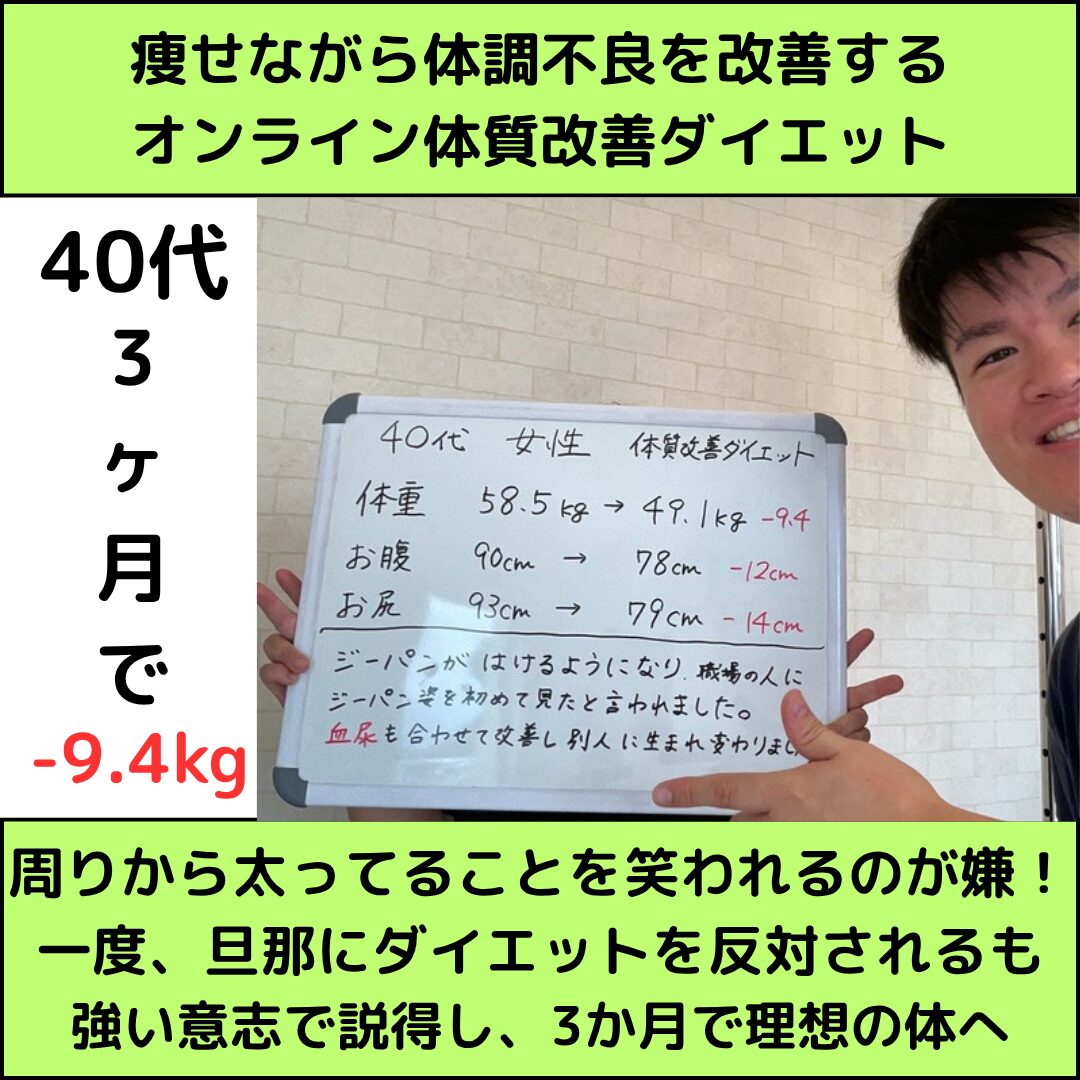 痩せながら体調不良を改善する
オンライン体質改善ダイエット
40代
3
ヶ
月
で
-9.4kg
40代 女性 体質改善ダイエット
体重 58.5kg → 49.1kg -9.4
お腹 90cm → 78cm -12cm
お尻 93cm → 79cm -14cm
ジーパンが はけるようになり、職場の人に
ジーパン姿を初めて見たと言われました。
血尿も合わせて改善し別人に生まれ変わりまし
周りから太ってることを笑われるのが嫌！
一度、旦那にダイエットを反対されるも
強い意志で説得し、3か月で理想の体へ